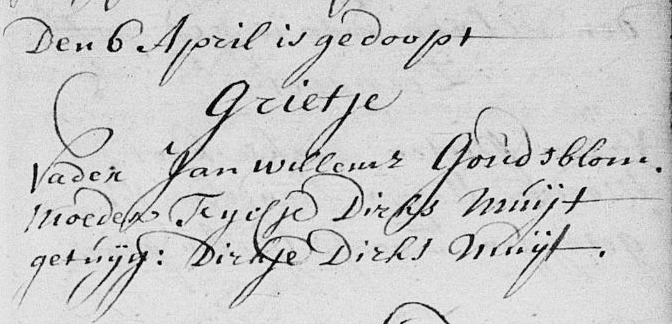 Den 6 April is gedoopt
Grietje
Vader Jan Willemz Goudsblom.
Moeder Tryntje Dirks Muijt
getuijg: Dirkje Dirks Muijt.